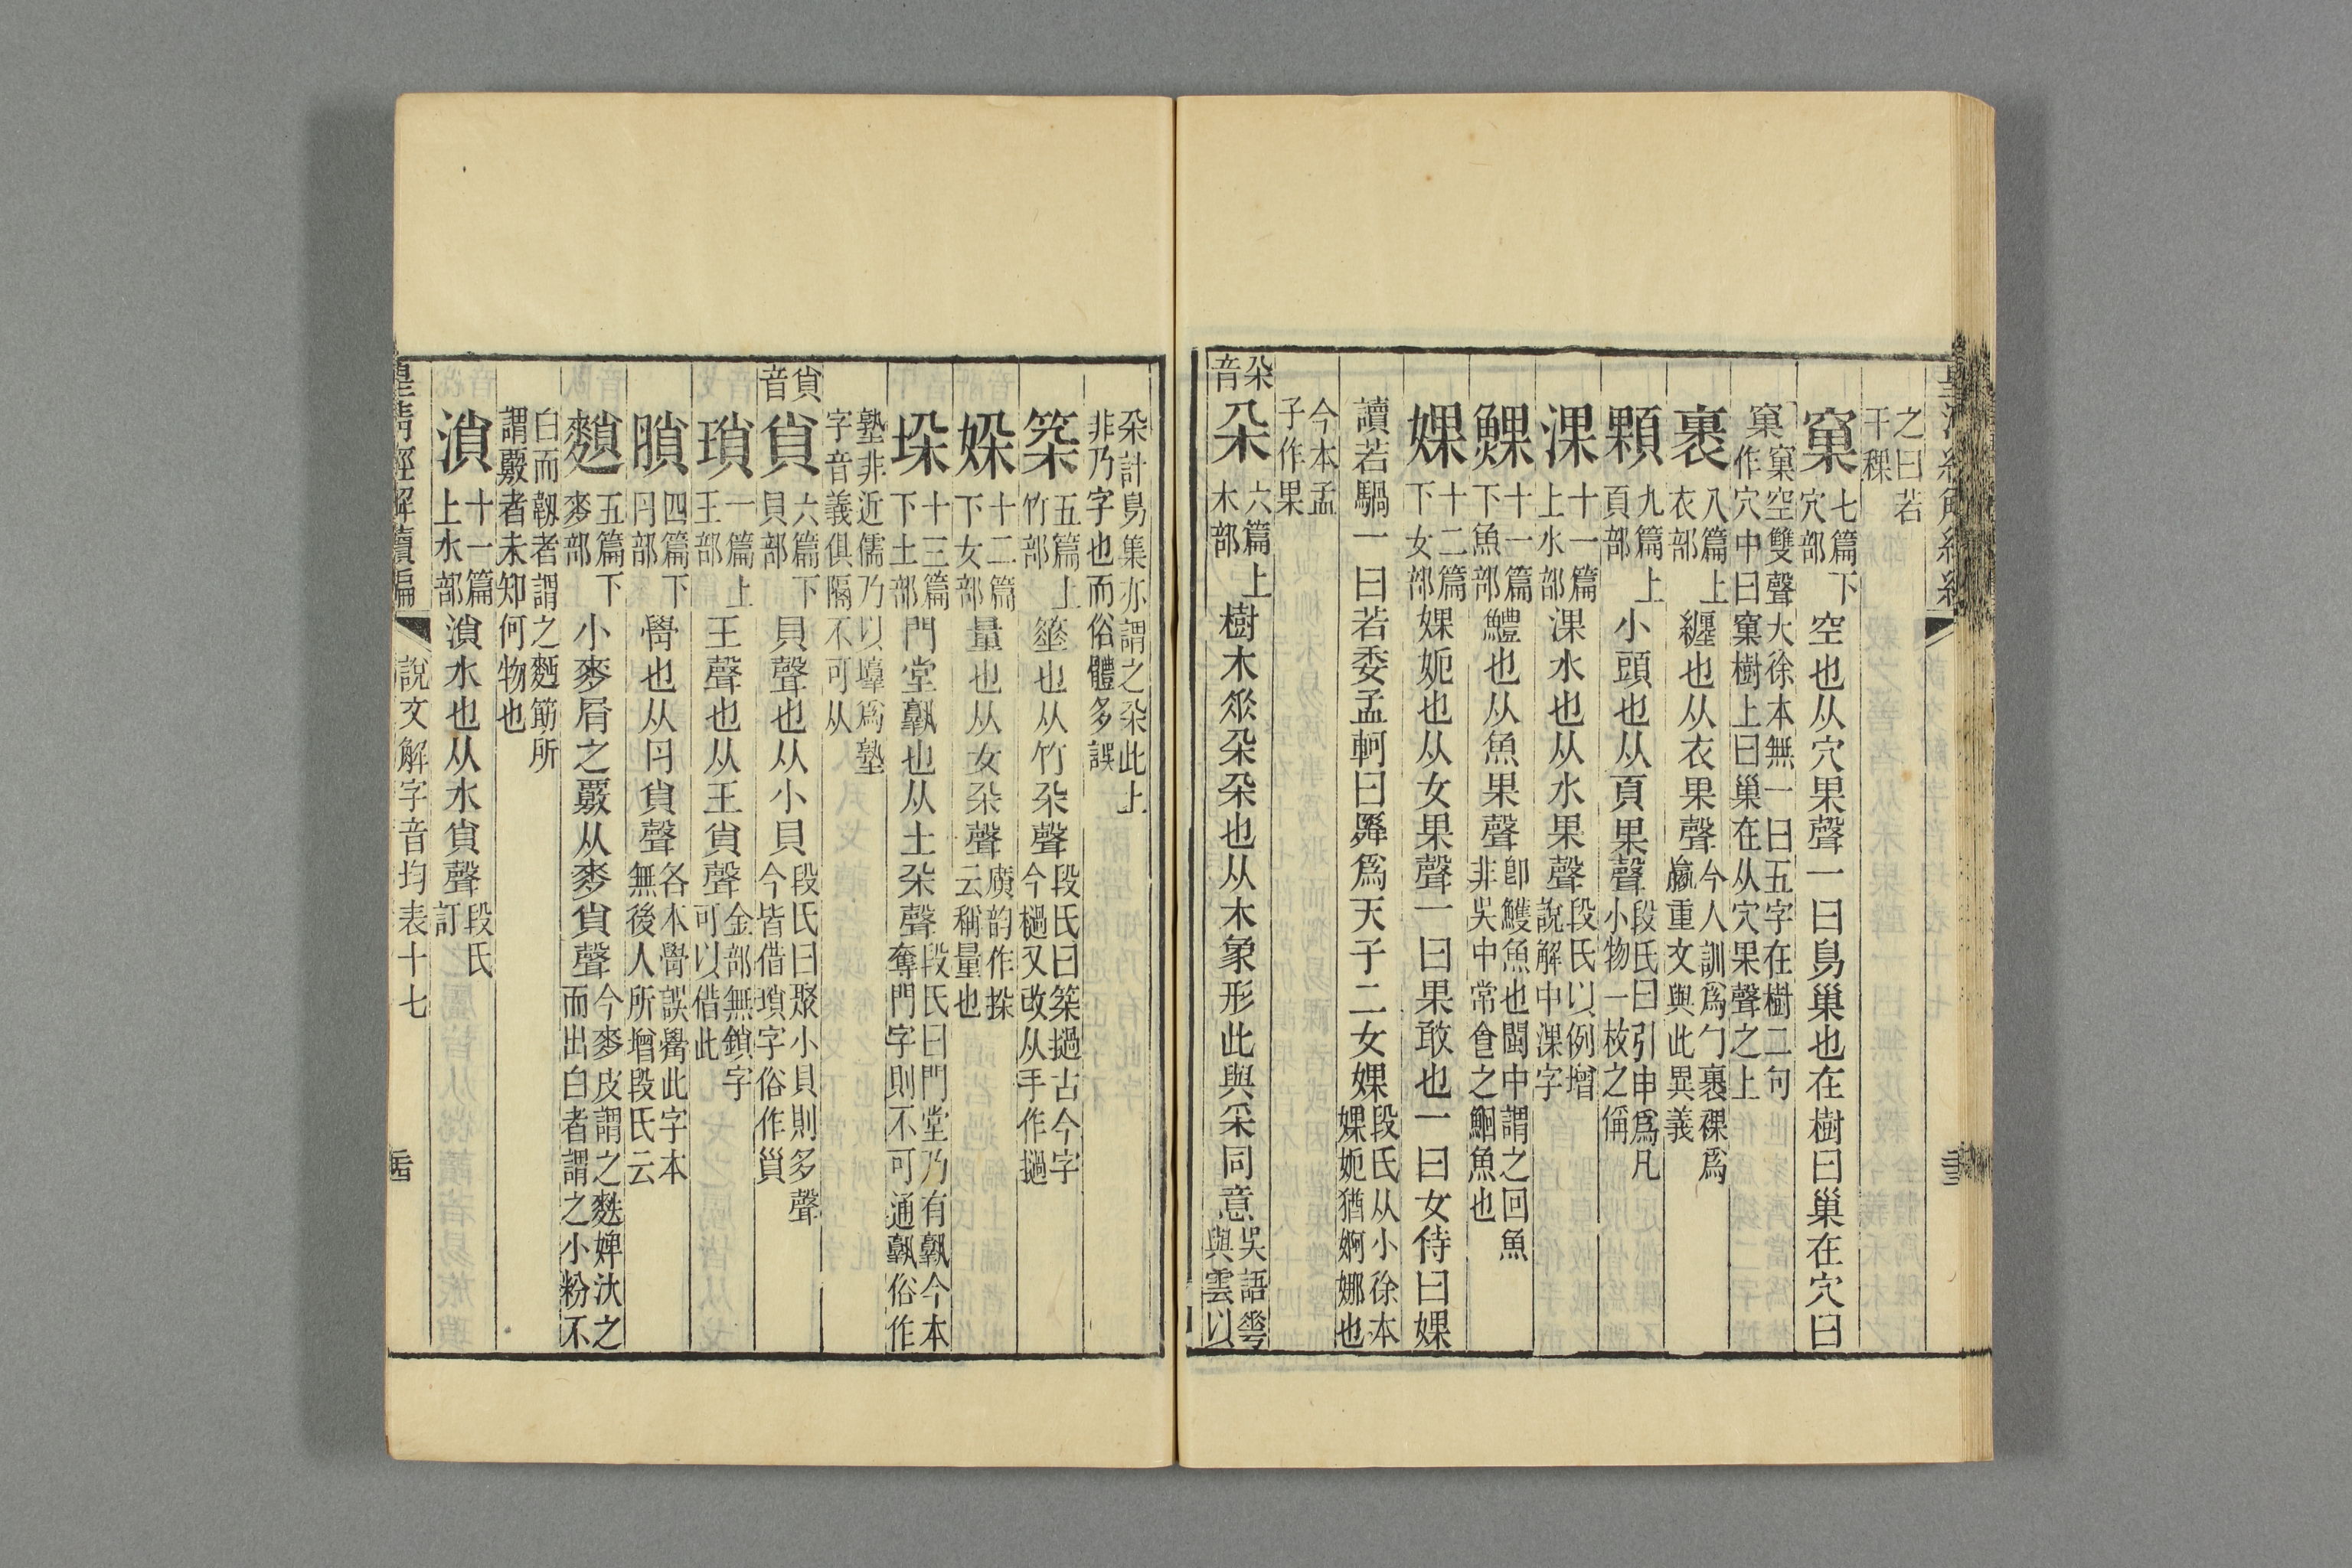 之曰若
干稞
窠 七篇下穴部 空也从穴果聲一曰鳥巢也在樹曰巢在穴曰
窠 窠空雙聲大徐本無一曰五字在樹二句
作穴中曰窠樹上曰巢在从穴果聲之上
裹 八篇上衣部 纏也从衣果聲 今人訓爲勹裹裸爲
嬴重文與此異義
顆 九篇上頁部 小頭也从頁果聲 段氏曰引申爲凡
小物一枚之偁
淉 十一篇上水部 淉水也从水果聲 段氏以例增
說解中淉字
鰥 十一篇下魚部 鱧也从魚果聲 卽鱯魚也閩中謂之回魚
非吳中常食之鮰魚也
婐 十二篇下女部 婐妮也从女果聲一曰果敢也一曰女侍曰婐
讀若騧一曰若委孟軻曰舜爲天子二女婐 段氏从小徐本
婐妮猶婀娜也
今本孟
子作果
朵音
朵 六篇上木部 樹木朵朵也从木象形此與采同意 吳語
與雲以
朵計鳥集亦謂之朵此上
非乃字也而俗體多誤
築 五篇上竹部 箠也从竹朵聲 段氏曰築撾古今字
今檛又改从手作撾
媣 十二篇下女部 量也从女朵聲 廣韵作挆
云稱量也
垛 十三篇下土部 門堂孰也从土朵聲 段氏曰門堂乃有孰今本
奪門字則不可通孰俗作
塾非近儒乃以𡑞爲塾
字音義俱隔不可从
𧴪音
𧴪 六篇下貝部 貝聲也从小貝 段氏曰聚小貝則多聲
今皆借瑣字俗作𧴪
瑣 一篇上王部 王聲也从王𧴪聲 金部無鎖字
可以借此
四篇下 也从 𧴪聲 各本 誤 此字本
無後人所增段氏云
五篇下麥部 小麥屑之覈从麥𧴪聲 今麥皮謂之麩婢汏之
而出白者謂之小粉不
白而韌者謂之麪筋所
謂覈者未知何物也
溑 十一篇上水部 溑水也从水𧴪聲 段氏
訂
皇清經解續編 說文解字音均表十七